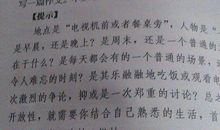 写一篇作文。
【提示】
地点是“电视机前或者餐桌旁”，人物是“
是早晨，还是晚上？是周末，还是一个普通的
在干什么？是每天都会有的一个普通的场景，
令人难忘的时刻？是其乐融融地吃饭或观看电
次激烈的争论，抑或是一次郑重的讨论？总
开放性，就需要你结合自己熟悉的生活，